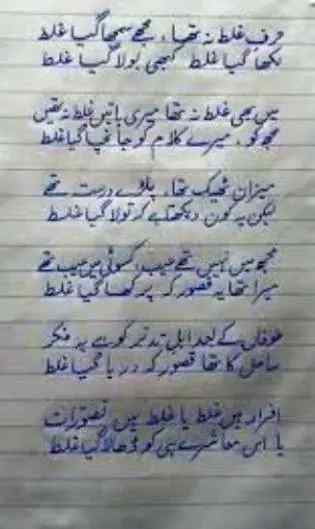 حرف غلط نہ تھا، مجھے سمجھا گیا غلط
لکھا گیا غلط کبھی بولا گیا غلط
میں بھی غلط نہ تھا میری باتیں غلط نہ تھیں
مجھ کو، میرے کلام کو جانچا گیا غلط
میزان ٹھیک تھا، پلڑے درست تھے
لیکن یہ کون دیکھتا ہے کہ تولا گیا غلط
مجھ میں نہیں تھے عیب، کسوٹی میں عیب تھے
میرا تھا یہ قصور کہ پرکھا گیا غلط
طوفاں کے بعد اہل تدبر کو ہے یہ فکر
ساحل کا تھا قصور کہ دریا گیا غلط
افراد ہیں غلط یا غلط ہیں تصورات
یا اس معاشرے ہی کو ڈھالا گیا غلط